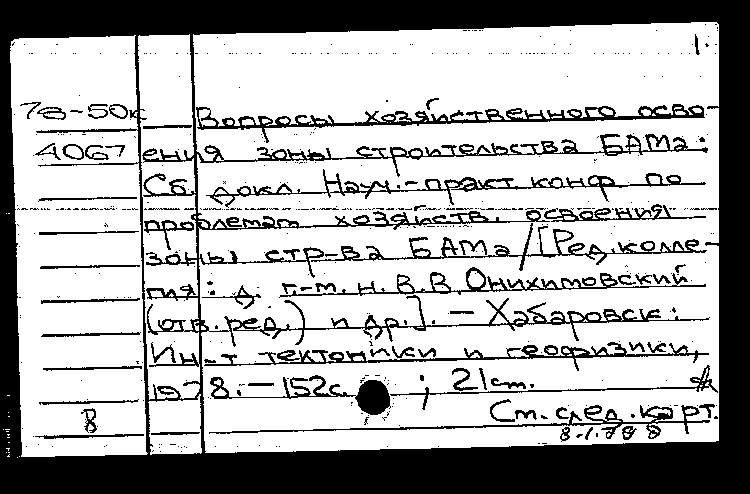 1.
78-50к Вопросы хозяйственного осво-
4067 ения зоны строительства БАМа:
Сб. докл. Науч.-практ конф по
проблемам хозяйств. освоения
зоны стр-ва БАМа/[Ред.колле-
гия: д. г.-м. н. В.В. Онихимовский
(отв. ред.) и др.]. — Хабаровск:
Ин-т тектоники и геофизики,
1978. — 152с. ; 21см.
8 См. след. карт.